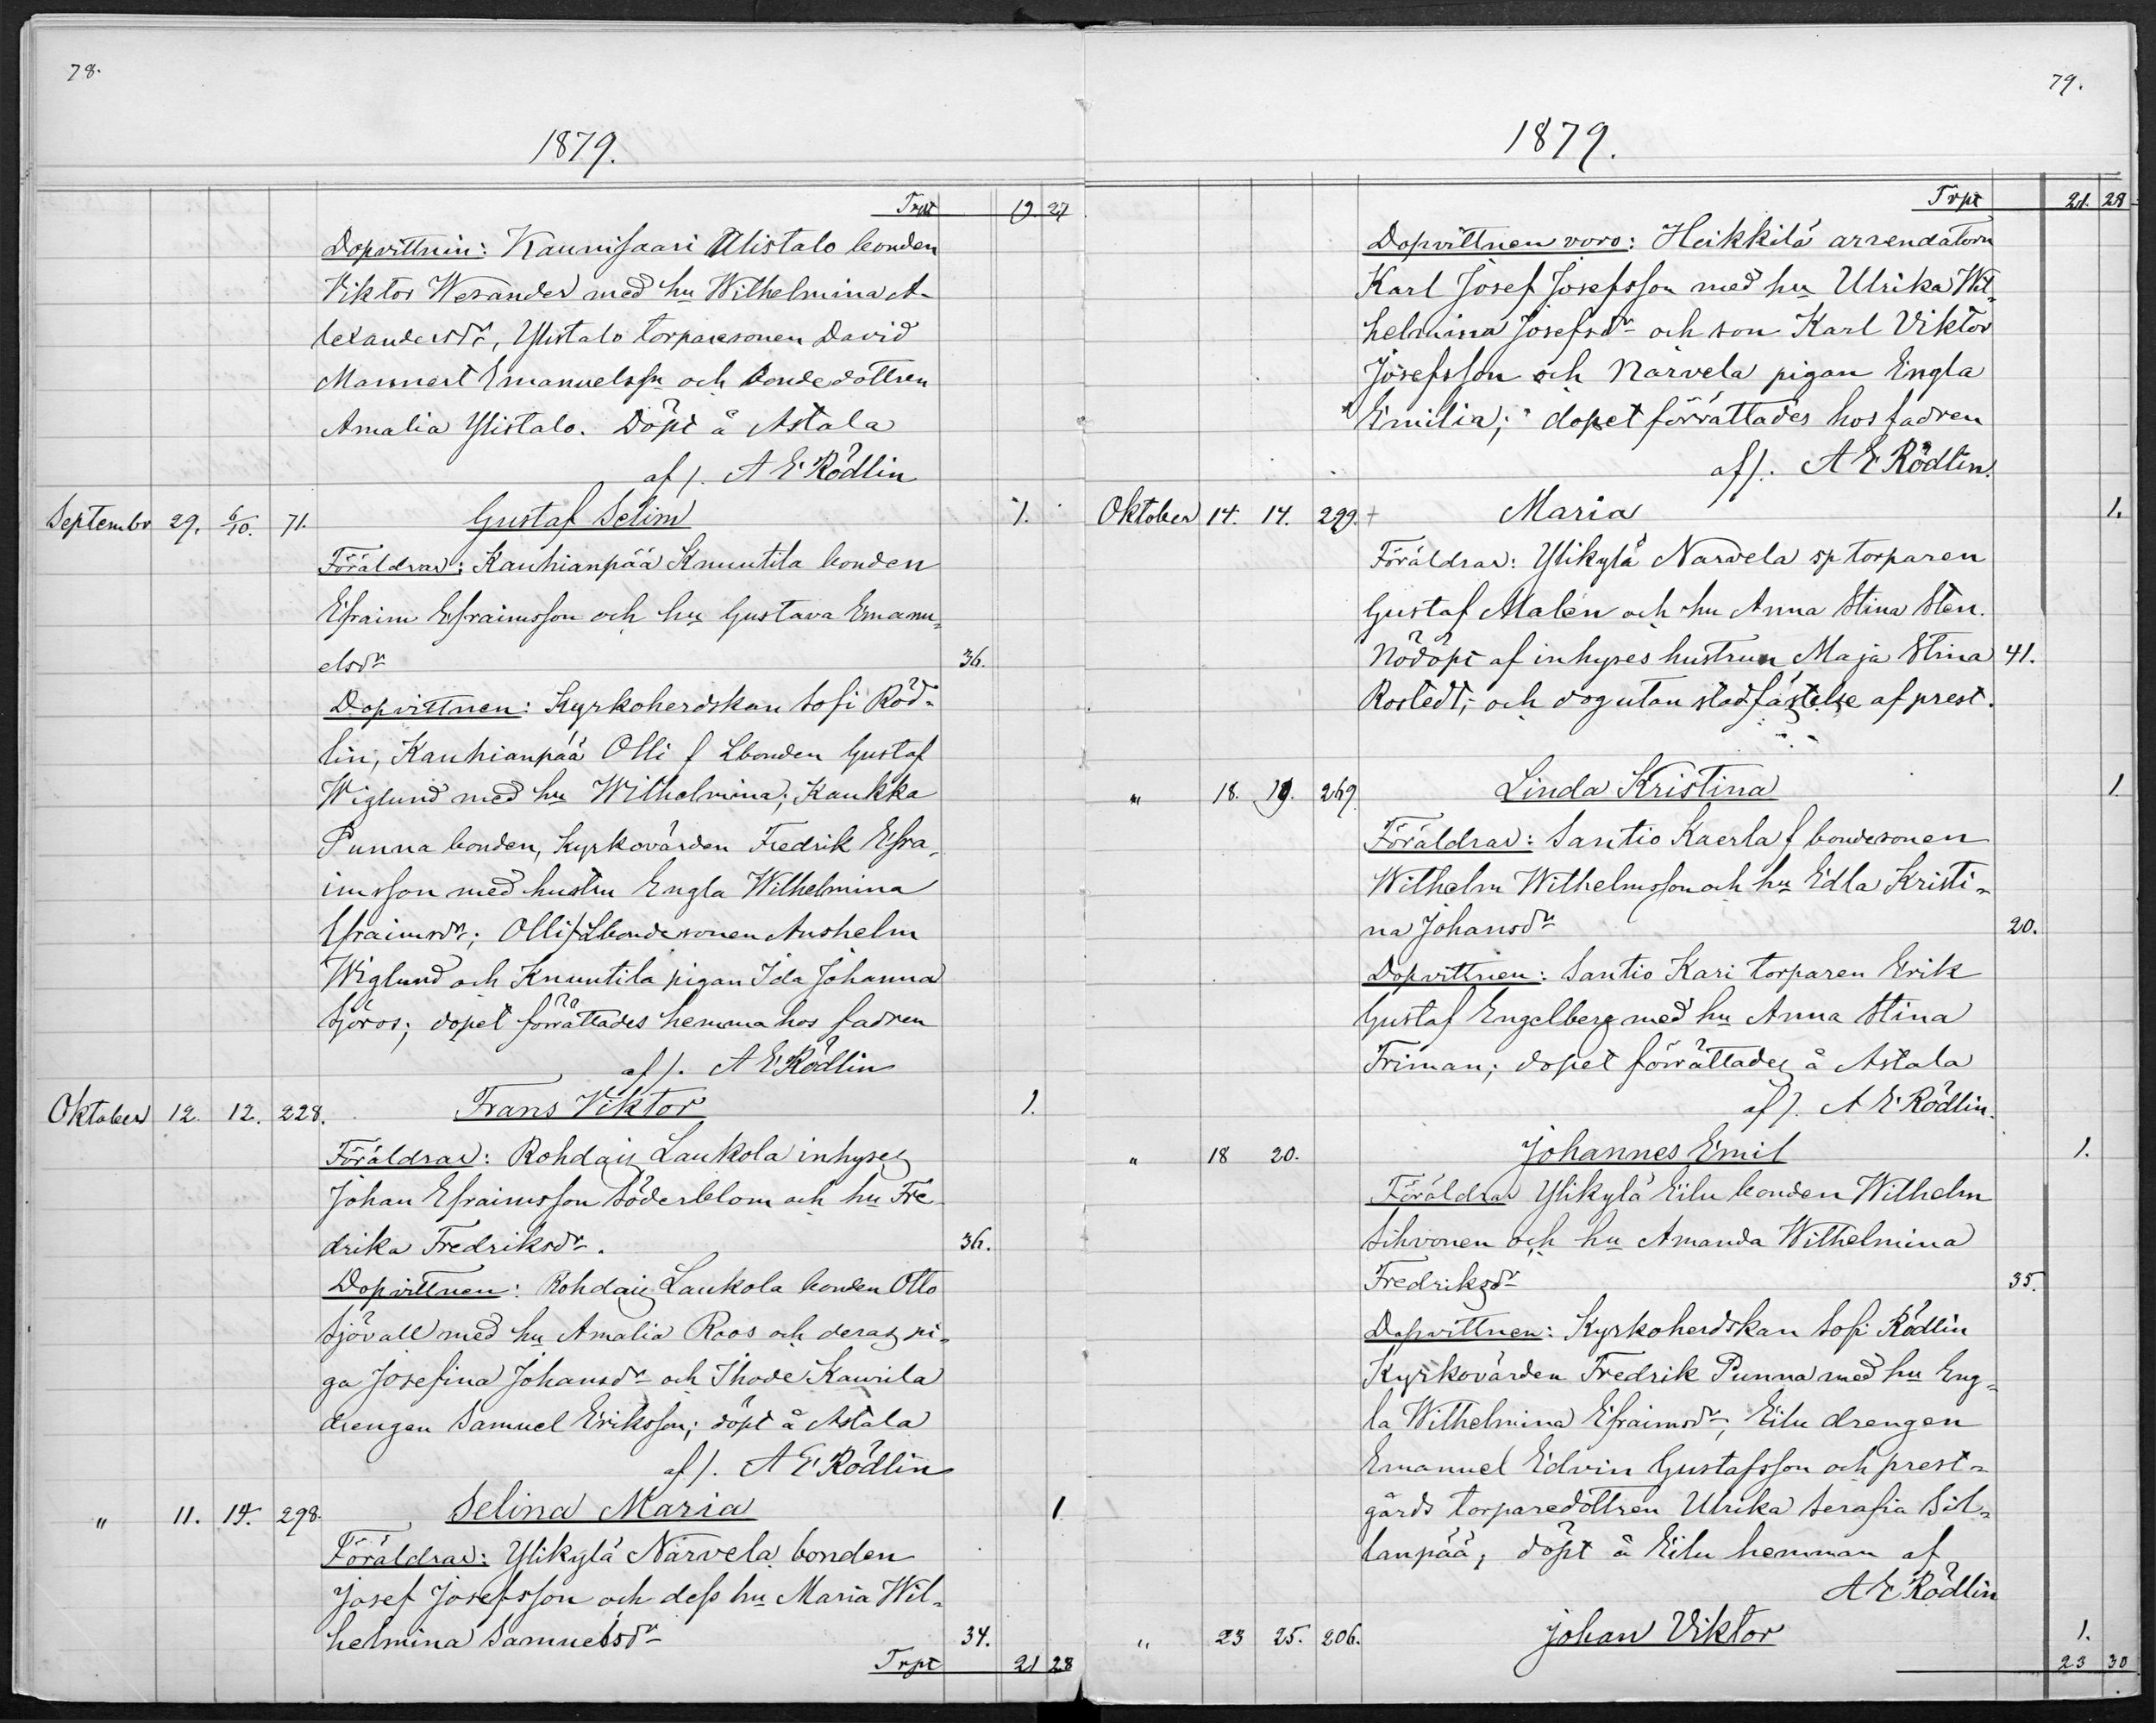 78.
1879.
Trpt 19. 27
Dopvittnin: Kaunisaari Ulistalo bonden
Viktor Werander med hu Wilhelmina A-
lexandersdr, Ylistalo torparesonen David
Mannert Emanuelssn och bondedottren
Amalia Ylistalo. Döpt å Astala
af /. A E Rödlin
Septembr 29. 6/10. 71. Gustaf Selim 1.
Föräldrar: Kauhianpää Knuutila bonden
Efraim Efraimsson och hu Gustava Emanu-
elsdr 36.
Dopvittnen: Kyrkoherdskan Sofi Röd-
lin, Kauhianpää Olli f Lbonden Gustaf
Wiglund med hu Wilhelmina; Kaukka
Punna bonden, Kyrkovärden Fredrik Efra-
imsson med hustru Engla Wilhelmina
Efraimsdr; Olli f Lbondesonen Anshelm
Wiglund och Knuutila pigan Ida Johanna
Sjöros; dopet förrättades hemma hos fadren
af /. A E Rödlin
Oktober 12. 12. 228. Frans Viktor 1.
Föräldrar: Rohdais Laukola inhyses
Johan Efraimsson Söderblom och hu Fre-
drika Fredriksdr. 36.
Dopvittnen: Rohdais Laukola bonden Otto
Sjövall med hu Amalia Roos och deras pi-
ga Josefina Johansdr och Ihode Kaurila
drengen Samuel Eriksson; döpt å Astala
af /. A E Rödlin
" 11. 14. 298. Selina Maria 1
Föräldrar: Ylikylä Närvela bonden
Josef Josefsson och dess hu Maria Wil-
helmina Samuelsdr 34.
Trpt 21 28
79.
1879.
Trpt 21. 28
Dopvittnen voro: Heikkilä arrendatorn
Karl Josef Josefsson med hu Ulrika Wil-
helmina Josefsdr och son Karl Viktor
Josefsson och Närvela pigan Engla
Emilia; dopet förrättades hos fadren
af /. A E Rödlin.
Oktober 14. 14. 299. + Maria 1.
Föräldrar: Ylikylä Narvela sp torparen
Gustaf Malén och hu Anna Stina Sten.
Nödöpt af inhyses hustrun Maja Stina 41.
Rostedt; och dog utan stadfästelse af prest.
" 18. 19. 269. Linda Kristina 1.
Föräldrar: Santio Kaerla f bondesonen
Wilhelm Wilhelmsson och hu Edla Kristi-
na Johansdr 20.
Dopvittnen: Santio Kari torparen Erik
Gustaf Engelberg med hu Anna Stina
Friman; dopet förrättades å Astala
af /. A E Rödlin.
" 18 20. Johannes Emil 1.
Föräldrar Ylikylä Eilu bonden Wilhelm
Sihvonen och hu Amanda Wilhelmina
Fredriksdr 35.
Dopvittnen: Kyrkoherdskan Sofi Rödlin
Kyrkovärden Fredrik Punna med hu Eng-
la Wilhelmina Efraimsdr; Eilu drengen
Emanuel Edvin Gustafsson och prest-
gårds torparedottren Ulrika Serafia Sil-
lanpää, döpt å Eilu hemman af
A E Rödlin
" 23 25. 206. Johan Viktor 1.
23 30